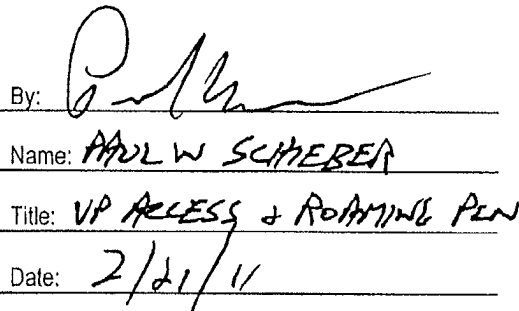 By:
Name: PAUL W SCHIEBER
Title: VP ACCESS & ROAMING
Date: 2/21/11